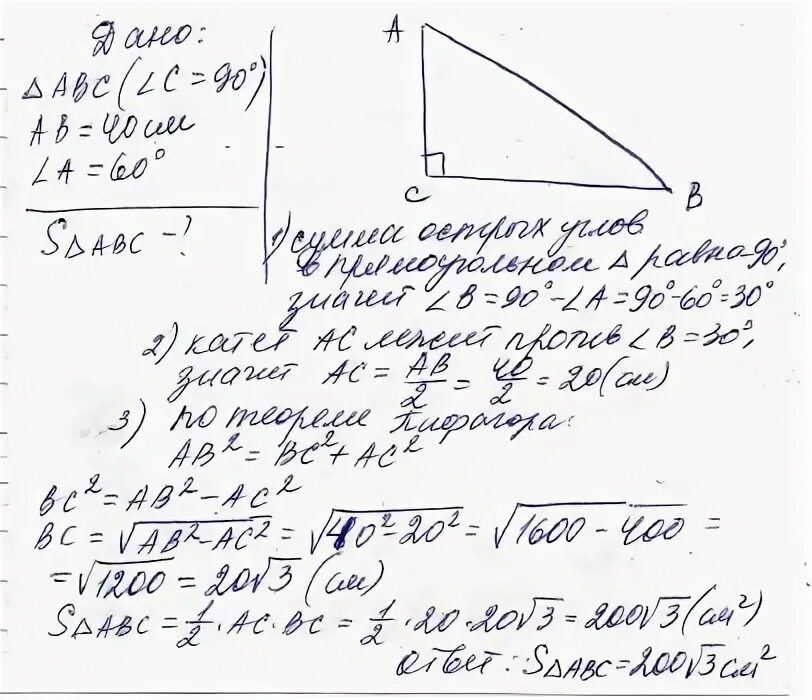 Дано:
△ABC (∠C = 90°)
AB = 40 см
∠A = 60°
S△ABC - ?
A
C
B
1) сумма острых углов
в прямоугольном △ равна 90°,
значит ∠B = 90° - ∠A = 90° - 60° = 30°
2) катет AC лежит против ∠B = 30°,
значит AC = AB/2 = 40/2 = 20 (см)
3) по теореме Пифагора:
AB² = BC² + AC²
BC² = AB² - AC²
BC = √(AB² - AC²) = √(40² - 20²) = √(1600 - 400) =
= √1200 = 20√3 (см)
S△ABC = 1/2 · AC · BC = 1/2 · 20 · 20√3 = 200√3 (см²)
ответ: S△ABC = 200√3 см²